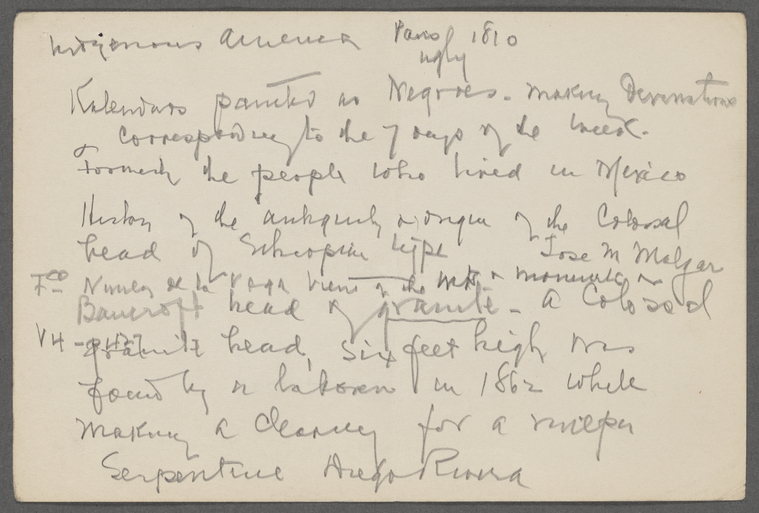 Indigenous America Paris 1810
ugly
Kalendars painted as Negroes - making
corresponding to the 7 days of the week.
Formerly the people who lived in Mexico
History of the antiquity & origin of the Colossal
head of Ethiopian type Jose M Melgar
Fco Nunez de la Vega of the
Bancroft head of granite - A Colossal
V4 - granite head, six feet high was
found by a laborer in 1862 while
making a clearing for a milpa
Serpentine Diego Rivera